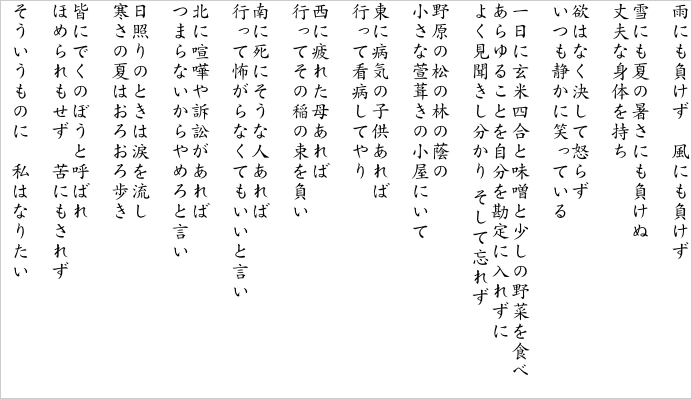 雨にも負けず　風にも負けず
雪にも夏の暑さにも負けぬ
丈夫な身体を持ち
欲はなく決して怒らず
いつも静かに笑っている
一日に玄米四合と味噌と少しの野菜を食べ
あらゆることを自分を勘定に入れずに
よく見聞きし分かり　そして忘れず
野原の松の林の蔭の
小さな萱葺きの小屋にいて
東に病気の子供あれば
行って看病してやり
西に疲れた母あれば
行ってその稲の束を負い
南に死にそうな人あれば
行って怖がらなくてもいいと言い
北に喧嘩や訴訟があれば
つまらないからやめろと言い
日照りのときは涙を流し
寒さの夏はおろおろ歩き
皆にでくのぼうと呼ばれ
ほめられもせず　苦にもされず
そういうものに　私はなりたい